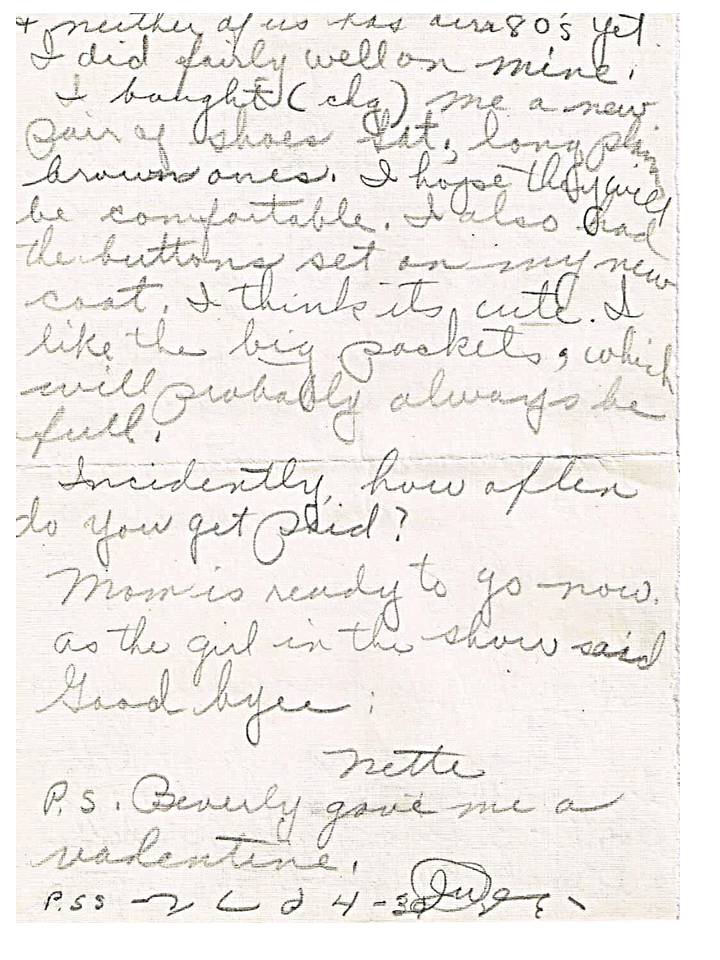 + neither of us has our 80's yet.
I did fairly well on mine.
I bought (chg) me a new
pair of shoes Sat., long plain
brown ones. I hope they will
be comfortable. I also had
the buttons set on my new
coat. I think its cute. I
like the big pockets, which
will probably always be
full.
Incidently, how often
do you get paid?
Mom is ready to go now.
as the girl in the show said
Good byee :
Nette
P.S. Beverly gave me a
valentine.
P.SS